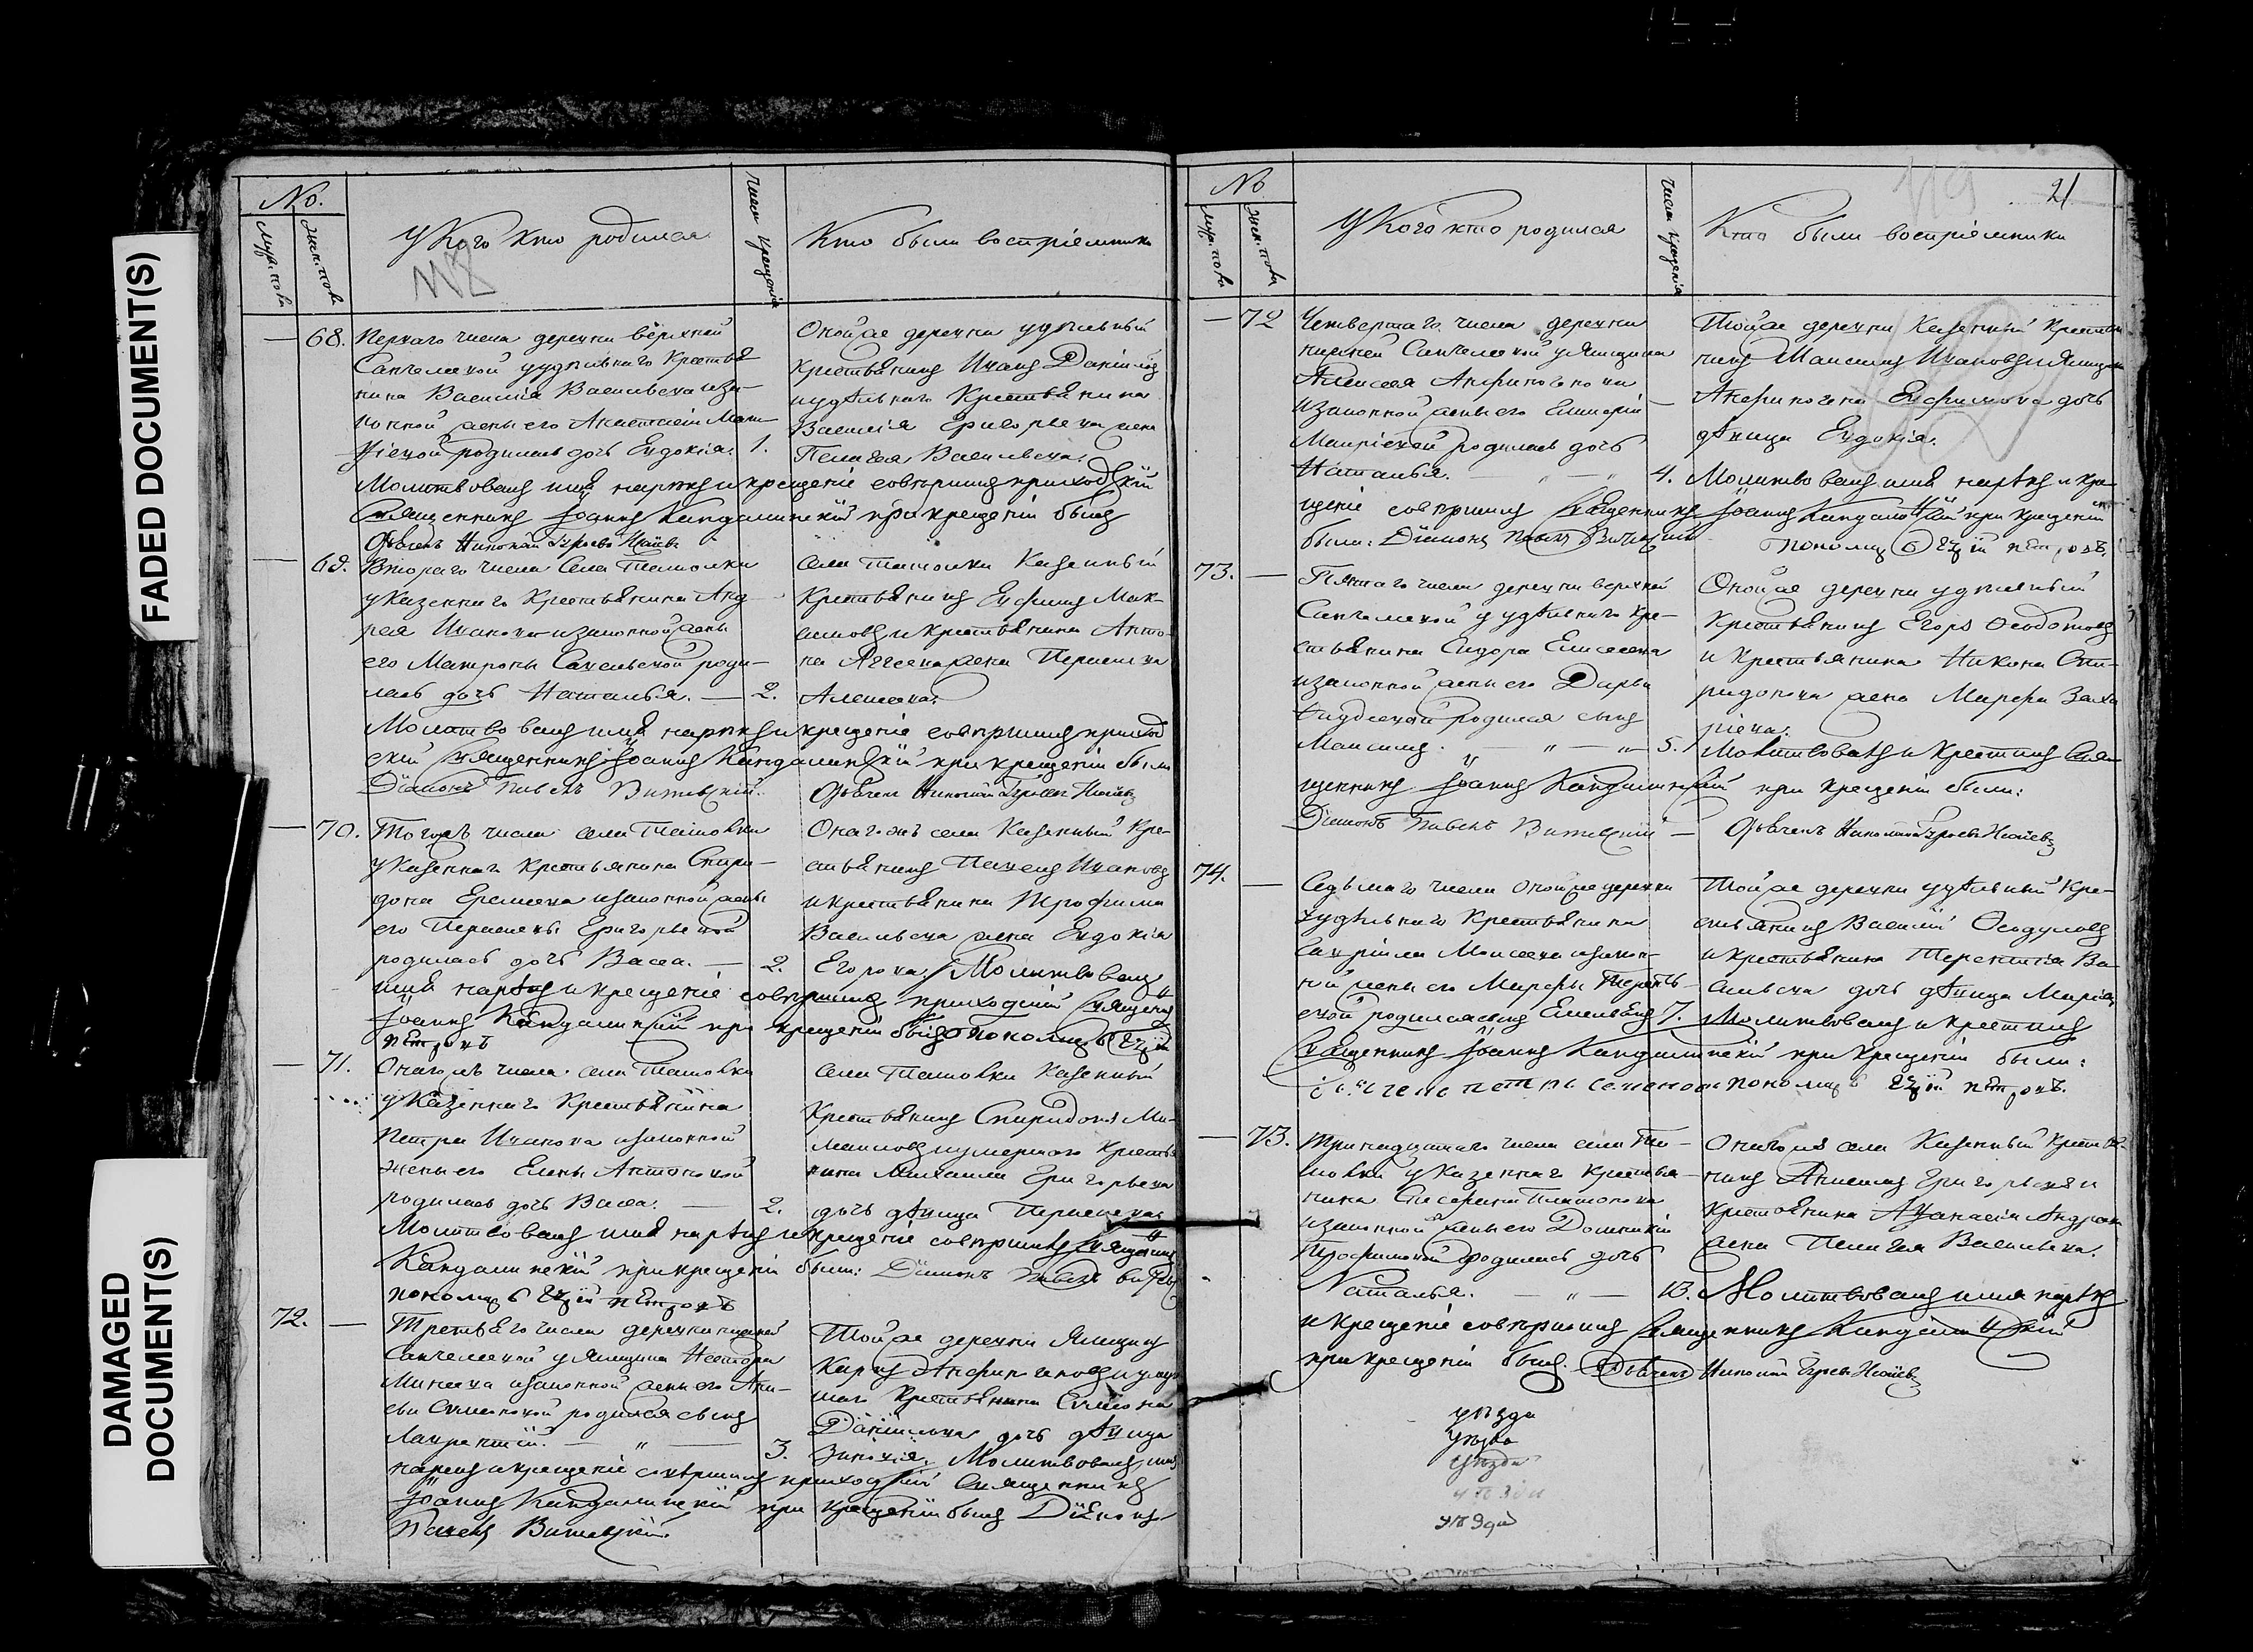 FADED DOCUMENT(S)
DAMAGED
DOCUMENT(S)
№.
Муж. пола
Жен. пола
У Кого кто родился
118
Число крещенія
Кто были воспріемники
68. Перваго числа деревни верхней
Санчелеской у удѣльнаго Крестья
нина Василія Васильева и за-
конной жены его Анастасіи
родилась дочь Евдокія. 1.
Оной же деревни удѣльный
крестьянинъ Иванъ Даніиловъ
и удѣльнаго Крестьянина
Василія Григорьева жена
Пелагея Васильева.
Молитвовалъ имя нарекъ и крещеніе совершилъ приходскій
Священникъ Іоаннъ Кандалинскій при крещеніи былъ
Дьячекъ Николай
69. Втораго числа села Ташолки
у Казеннаго Крестьянина Анд
рея Иванова и законной жены
его Матроны Савельевой роди-
лась дочь Наталья. — 2.
Села Ташолки Казенный
Крестьянинъ Ефимъ Мак-
симовъ и крестьянина Анто-
на жена
Алексеева.
Молитвовалъ имя нарекъ и крещеніе совершилъ приход
скій Священникъ Іоаннъ Кандалинскій при крещеніи были
Діаконъ Павелъ Витевскій. Дьячекъ Николай
70. Того жъ числа села Ташолки
у Казеннаго Крестьянина Спири-
дона Еремеева и законной жены
его Григорьевой
родилась дочь Васса. — 2.
Онаго жъ села Казенный Кре-
стьянинъ Павелъ Ивановъ
и крестьянина Трофима
Васильева жена Евдокія
Егорова. Молитвовалъ
имя нарекъ и крещеніе совершилъ приходскій Священ
Іоаннъ Кандалинскій при крещеніи былъ пономарь
Петровъ
71. Онаго жъ числа села Ташолки
у Казеннаго Крестьянина
Петра Иванова и законной
жены его Елены Антоновой
родилась дочь Васса. — 2.
Села Ташолки Казенный
Крестьянинъ Спиридонъ Ми-
хаиловъ и умершаго Крестья
нина Михаила Григорьева
дочь дѣвица
Молитвовалъ имя нарекъ и крещеніе совершилъ Священникъ
Кандалинскій при крещеніи были: Діаконъ Павелъ
пономарь Петровъ
72. — Третьяго числа деревни нижней
Санчелеской у Ямщика Нестора
Минеева и законной жены его Ани-
сьи Симоновой родился сынъ
Лаврентій. — „ — 3.
Той же деревни Ямщикъ
Карпъ и умер
шаго Крестьянина Симона
Данилова дочь дѣвица
Зиновія. Молитвовалъ имя
нарекъ и крещеніе совершилъ приходскій Священникъ
Іоаннъ Кандалинскій при крещеніи былъ Діаконъ
Павелъ Витевскій.
№
Муж. пола
Жен. пола
У Кого кто родился
Число крещенія
Кто были воспріемники
119
21
— 72 Четвертаго числа деревни
нижней Санчелеской у Ямщика
Алексея Анфиногенова
и законной жены его
родилась дочь
Наталья. — „ — „ 4.
Той же деревни Казенный Крестьян
нинъ Максимъ Ивановъ и Ямщика
Анфиногена Ефимова дочь
дѣвица Евдокія.
Молитвовалъ имя нарекъ и кре
щеніе совершилъ Священникъ Іоаннъ Кандалинскій при крещеніи
были: Діаконъ Павелъ Витевскій Пономарь Петровъ.
73. — Пятаго числа деревни верхней
Санчелеской у удѣльнаго Кре-
стьянина Сидора Елисеева
и законной жены его Дарьи
родился сынъ
Максимъ. „ — „ — „ 5.
Оной же деревни удѣльный
Крестьянинъ Егоръ Ѳеодотовъ
и Крестьянина Никона Спи-
ридонова жена Марфа Заха
ріева.
Молитвовалъ и крестилъ Свя
щенникъ Іоаннъ Кандалинскій при крещеніи были:
Діаконъ Павелъ Витевскій — Дьячекъ Николай
74. — Седьмаго числа оной же деревни
у удѣльнаго Крестьянина
Гавріила Моисеева и закон-
ной жены его Марфы Терентье-
вой родился сынъ Емельянъ 7.
Той же деревни удѣльный Кре-
стьянинъ Василій Ѳеодуловъ
и крестьянина Терентія Ва-
сильева дочь дѣвица Марія
Молитвовалъ и крестилъ
Священникъ Іоаннъ Кандалинскій при крещеніи были:
Петръ Семеновъ пономарь Петровъ.
— 73. Тринадцатаго числа села Та-
шолки у Казеннаго Крестья-
нина Платонова
и законной жены его Домникіи
Трофимовой родилась дочь
Наталья. — „ — 13.
Онаго жъ села Казенный Крестья-
нинъ Анисимъ Григорьевъ и
крестьянина Аѳанасія Андреев
жена Пелагея Васильева.
Молитвовалъ имя нарекъ
и крещеніе совершилъ Священникъ Кандалинскій
при крещеніи былъ. Дьячекъ Николай
уѣзда
уѣзда
уѣзда
уѣзда
уѣзда